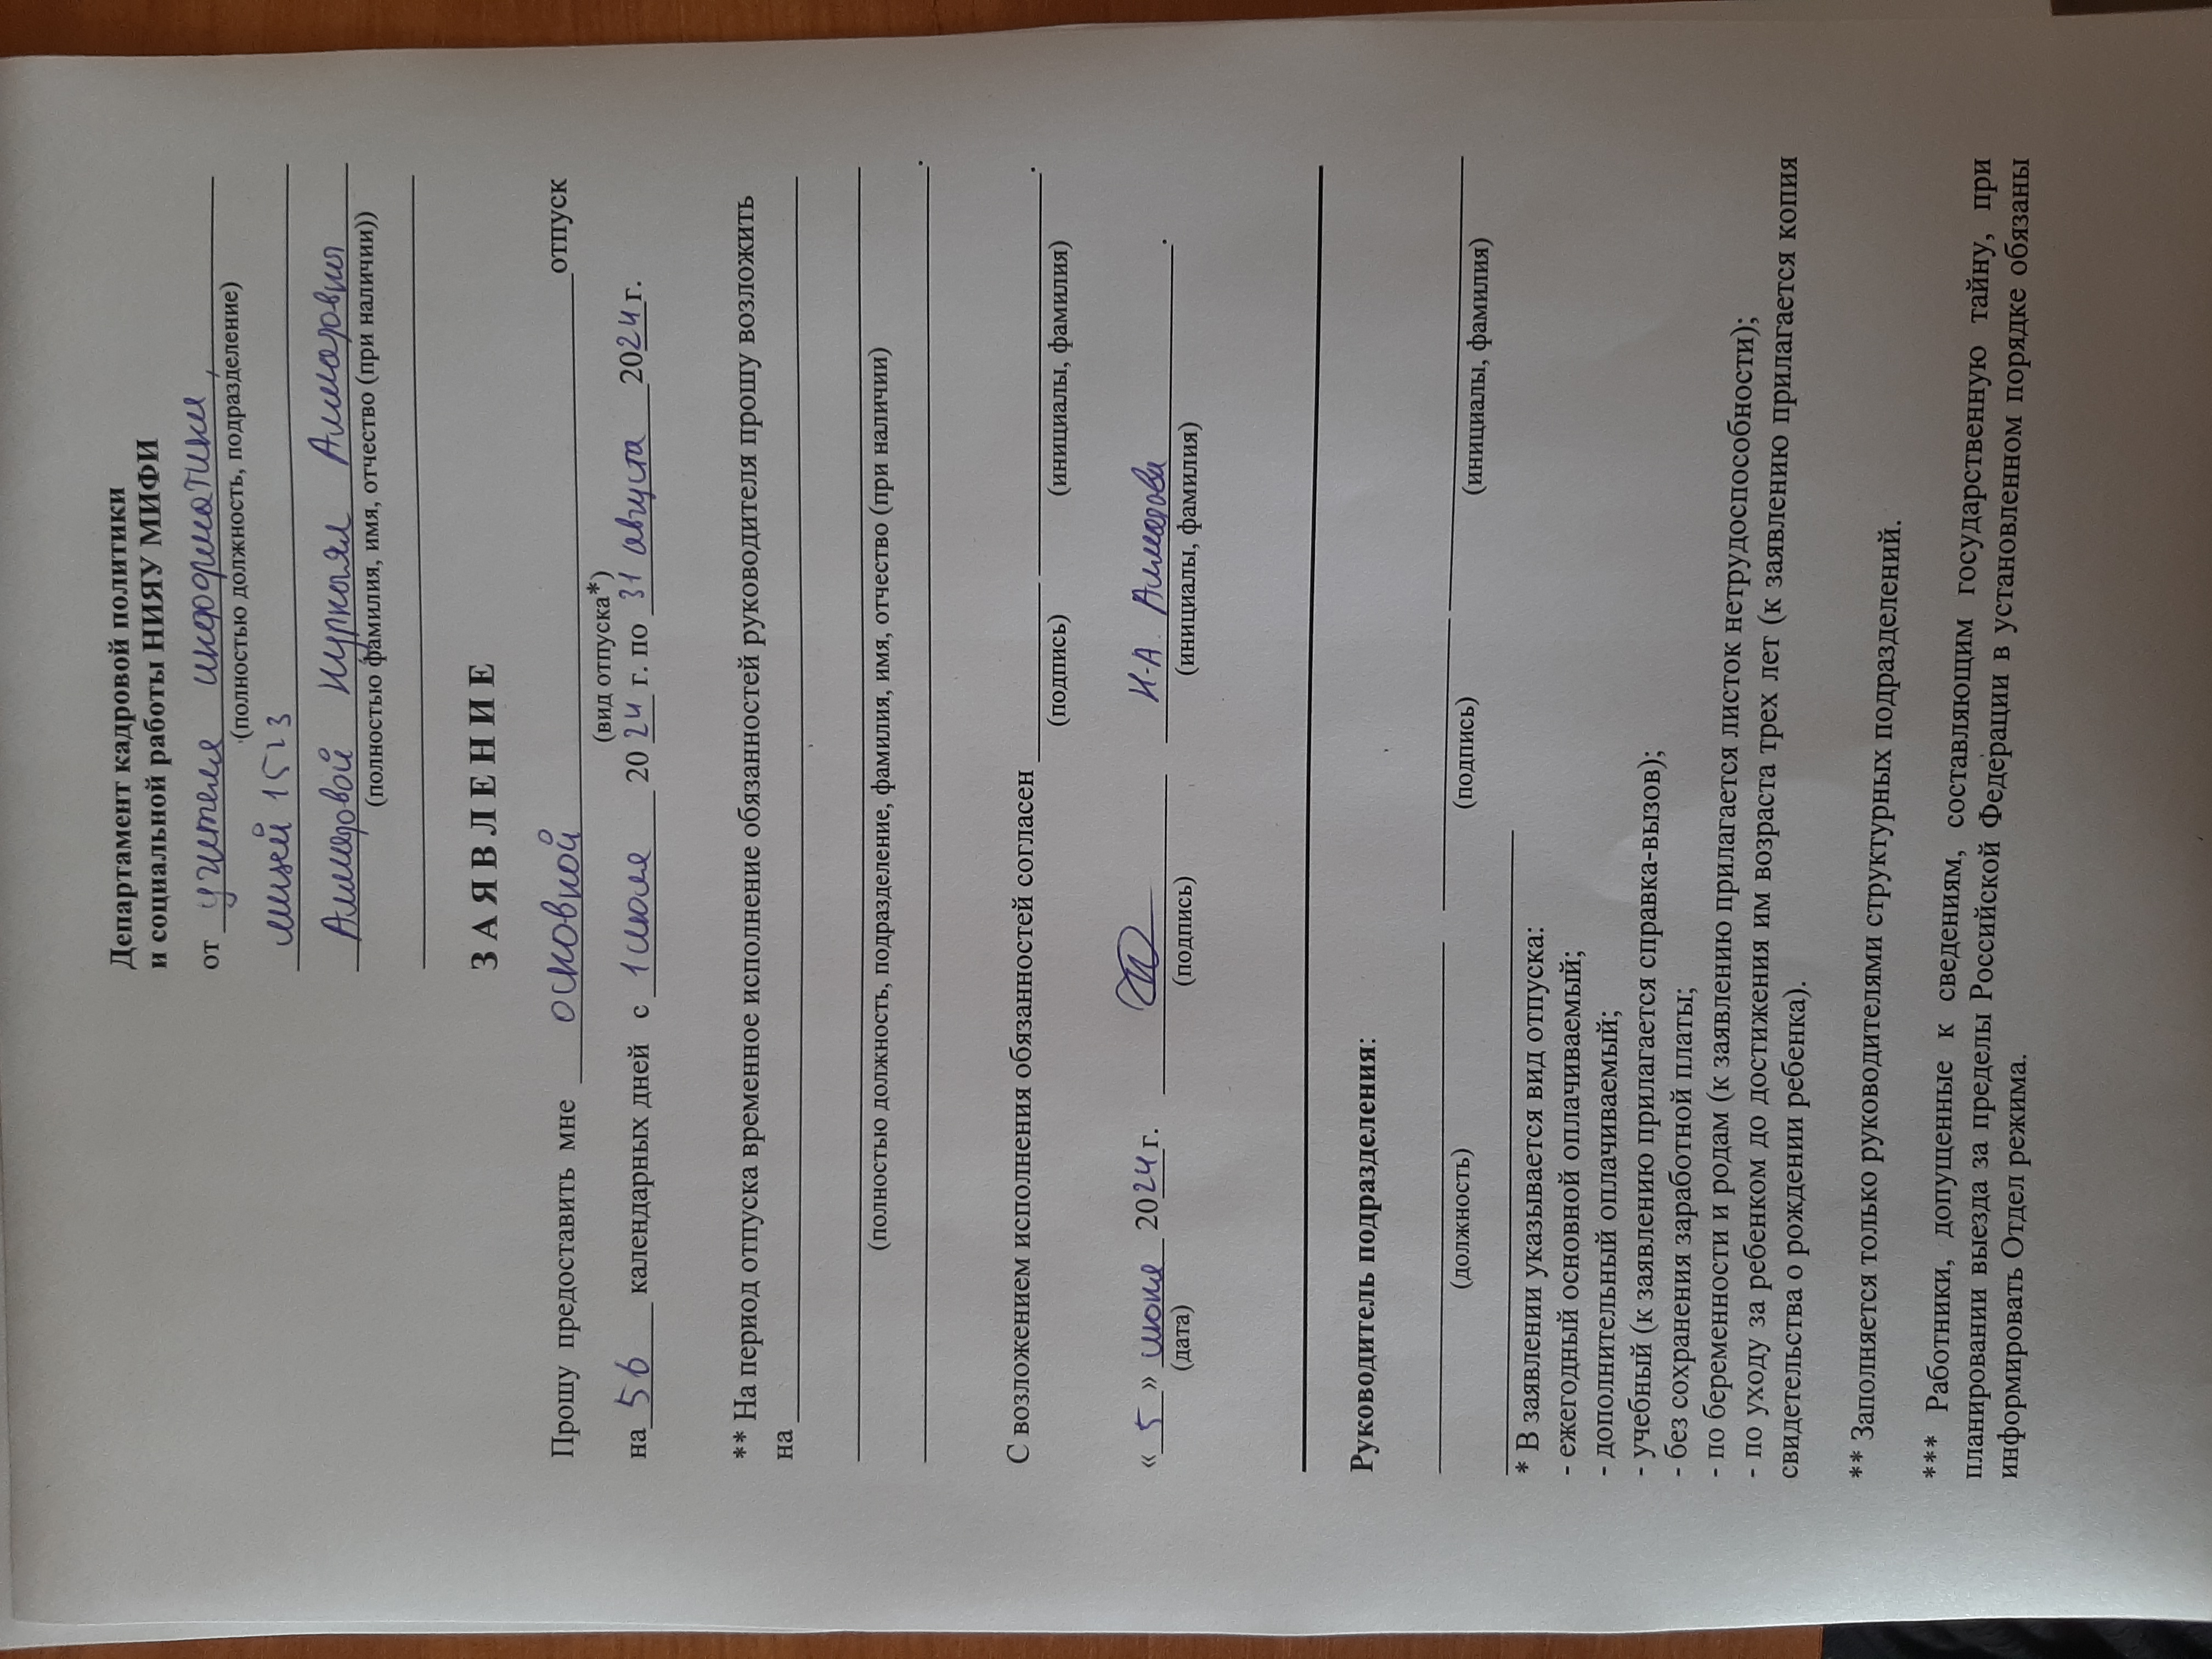 Департамент кадровой политики
и социальной работы НИЯУ МИФИ
от учителя информатики,
(полностью должность, подразделение)
лицей 1523
Алмазовой Нуркыял Алмазовны
(полностью фамилия, имя, отчество (при наличии))
ЗАЯВЛЕНИЕ
Прошу предоставить мне основной отпуск
(вид отпуска*)
на 56 календарных дней с 1 июля 2024 г. по 31 августа 2024 г.
** На период отпуска временное исполнение обязанностей руководителя прошу возложить
на
(полностью должность, подразделение, фамилия, имя, отчество (при наличии)
.
С возложением исполнения обязанностей согласен .
(подпись) (инициалы, фамилия)
«5» июня 2024 г. Н.А. Алмазова.
(дата) (подпись) (инициалы, фамилия)
Руководитель подразделения:
(должность) (подпись) (инициалы, фамилия)
* В заявлении указывается вид отпуска:
- ежегодный основной оплачиваемый;
- дополнительный оплачиваемый;
- учебный (к заявлению прилагается справка-вызов);
- без сохранения заработной платы;
- по беременности и родам (к заявлению прилагается листок нетрудоспособности);
- по уходу за ребенком до достижения им возраста трех лет (к заявлению прилагается копия
свидетельства о рождении ребенка).
** Заполняется только руководителями структурных подразделений.
*** Работники, допущенные к сведениям, составляющим государственную тайну, при
планировании выезда за пределы Российской Федерации в установленном порядке обязаны
информировать Отдел режима.